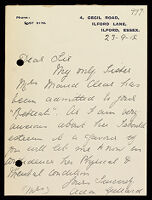 417
PHONE:
4, CECIL ROAD,
ILFORD LANE,
ILFORD, ESSEX.
27-9-15
Dear Sir
My only Sister
Mrs Maud Clent has
been admitted to your
"Retreat". As I am very
anxious about her I should
esteem it a favour if
you will let me know in
confidence her Physical &
Mental Condition
Yours Sincerely
(Mrs)